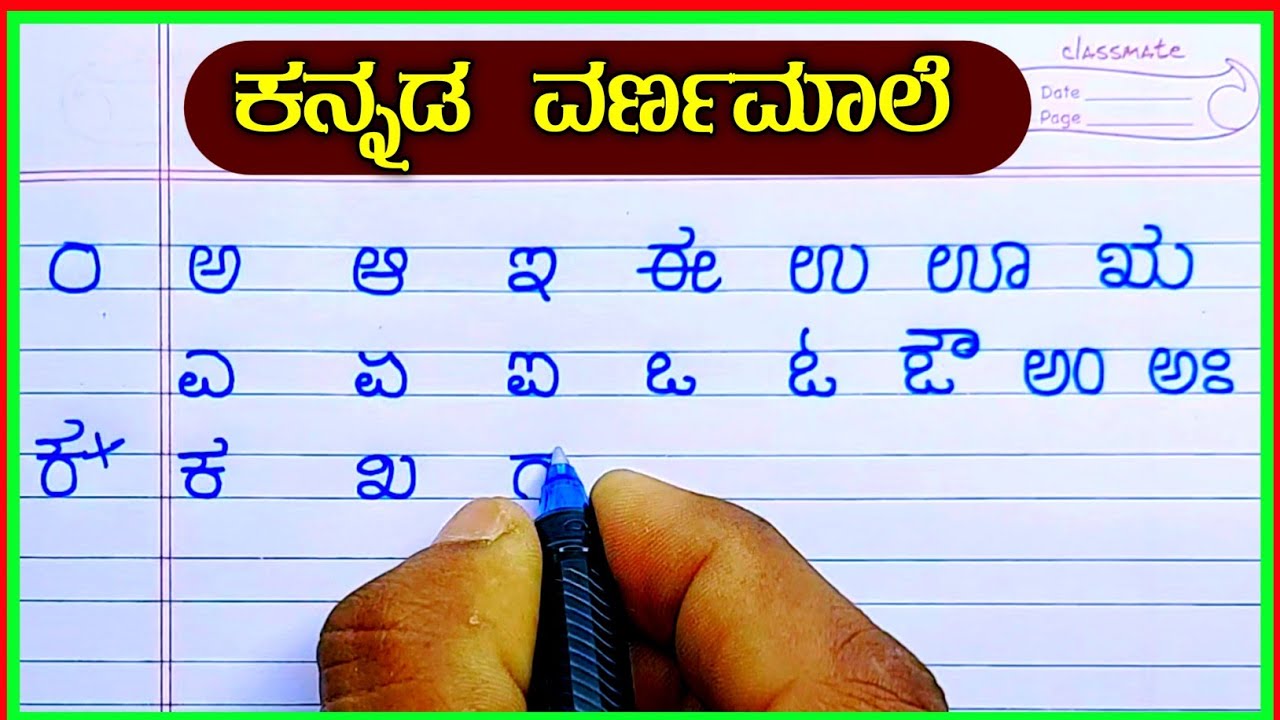 ಕನ್ನಡ ವರ್ಣಮಾಲೆ
classmate
Date
Page
೦ ಅ ಆ ಇ ಈ ಉ ಊ ಋ
ಎ ಏ ಐ ಒ ಓ ಔ ಅಂ ಅಃ
ಕ× ಕ ಖ ಗ